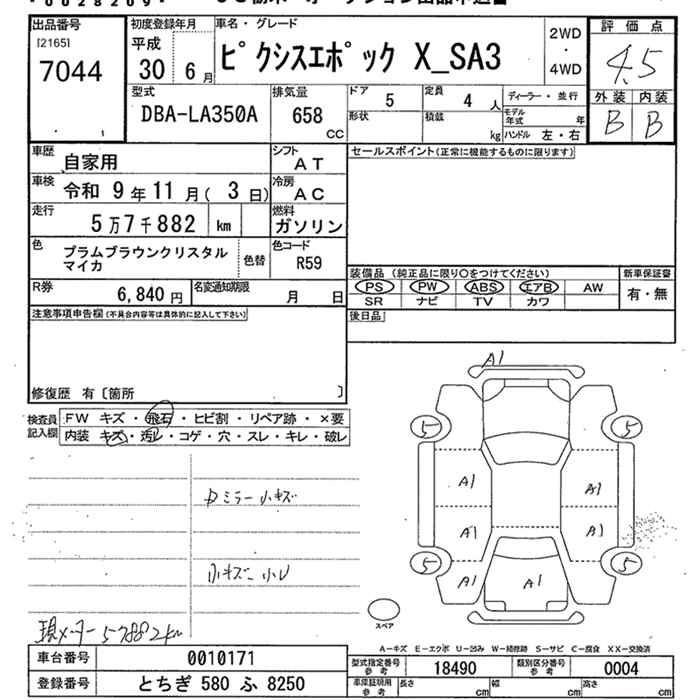 出品番号
[2165]
7044
初度登録年月
平成
30 6月
車名・グレード
ピクシスエポック X_SA3
2WD
・
4WD
評価点
4.5
外装 内装
B B
型式
DBA-LA350A
排気量
658
cc
ドア
5
定員
4 人
形状
積載
kg
ディーラー・並行
モデル年式 年
ハンドル 左・右
車歴 自家用
シフト AT
車検 令和 9年11月(3日)
冷房 AC
走行 5万7千882 km
燃料 ガソリン
色 プラムブラウンクリスタル
マイカ
色替
色コード R59
R券 6,840円
名変通知期限 月 日
セールスポイント(正常に機能するものに限ります)
装備品 (純正品に限り○をつけてください)
PS PW ABS エアB AW
SR ナビ TV カワ
新車保証書
有・無
後日品
注意事項申告欄(不具合内容等は具体的に記入して下さい)
修復歴 有〔箇所 〕
検査員
記入欄
FW キズ・飛石・ヒビ割・リペア跡・×要
内装 キズ・汚レ・コゲ・穴・スレ・キレ・破レ
ミラー小キズ
小キズ 小U
現メーター57882km
A1
5 5
A1 A1
A1 A1
5 5
A1 A1
スペア
A-キズ E-エクボ U-凹み W-補修跡 S-サビ C-腐食 XX-交換済
車台番号 0010171
登録番号 とちぎ 580 ふ 8250
型式指定番号
参考
18490
類別区分番号
参考
0004
車庫証明用
参考
長さ cm 幅 cm 高さ cm